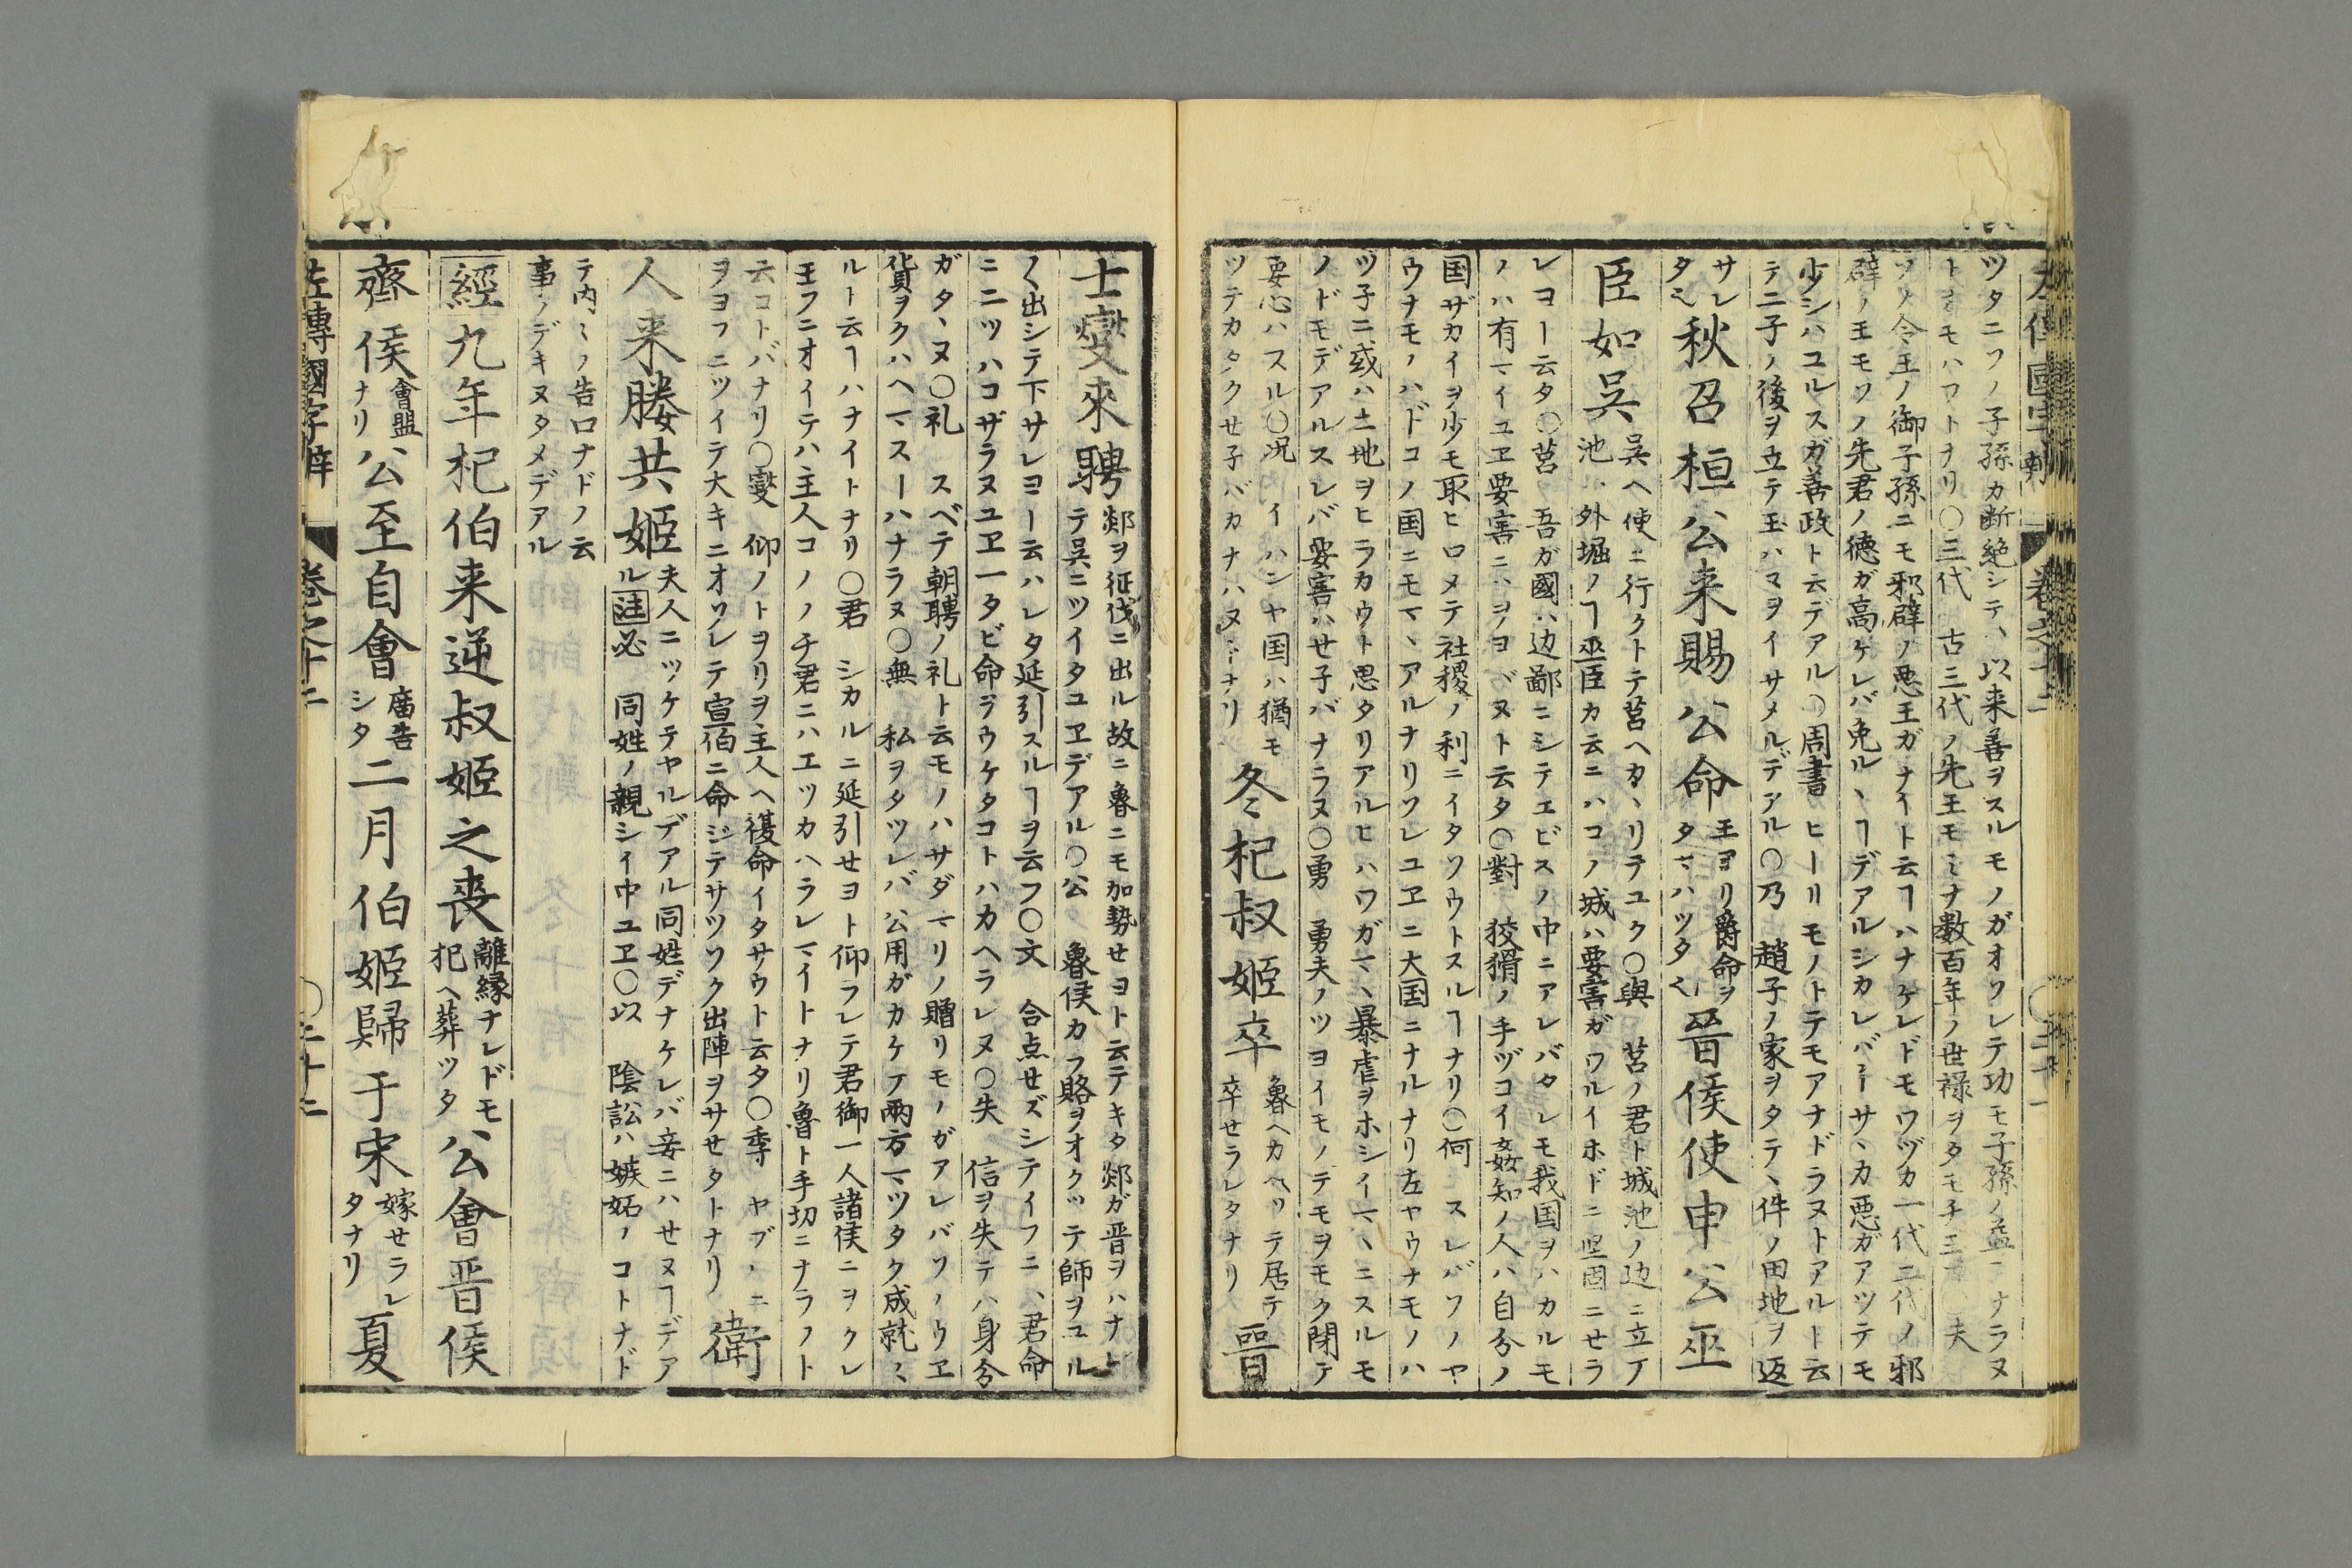 ツタニソノ子孫カ断絶シテ、以来善ヲスルモノガオソレテ功モ子孫ノ益ニナラヌ
トキモハコトナリ〇三代 古三代ノ先王モミナ数百年ノ世禄ヲタモチ 夫
ソノ令王ノ御子孫ニモ邪辟ノ悪王ガナイト云ヿハナケレドモワヅカ一代二代ノ邪
辟ノ王モソノ先君ノ徳ガ高ケレバ免ル、ヿデアルシカレバーサ、カ悪ガアツテモ
少シハユルスガ善政ト云デアル〇周書 ヒーリモノトテモアナドラヌトアルト云
テ二子ノ後ヲ立テ玉ハマヲイサメルデアル〇乃 趙子ノ家ヲタテ、件ノ田地ヲ返
サレ
タヘ
秋召桓公来賜公命
王ヨリ爵命ヲ
タマハツタヘ
晉侯使申公巫
臣如呉
呉ヘ使ニ行クトテ莒ヘカ、リテユク〇與 莒ノ君ト城池ノ辺ニ立テ
池ハ外堀ノヿ巫臣カ云ニハコノ城ハ要害ガワルイホドニ堅固ニセラ
レヨー云タ〇莒 吾ガ國ハ辺鄙ニシテエビスノ中ニアレバタレモ我国ヲハカルモ
ノハ有マイユヱ要害ニハヲヨバヌト云タ〇對 狡猾ノ手ヅコイ姦知ノ人ハ自分ノ
国ザカイヲ少モ取ヒロメテ社稷ノ利ニイタソウトスルヿナリ〇何 スレバソノヤ
ウナモノハドコノ国ニモマ、アルナリソレユヱニ大国ニナルナリ左ヤウナモノハ
ツ子ニ或ハ土地ヲヒラカウト思タリアルヒハワガマ、暴虐ヲホシイマ、ニスルモ
ノドモデアルスレバ要害ハせ子バナラヌ〇勇 勇夫ノツヨイモノテモヲモク閉テ
要心ハスル〇況 イハンヤ国ハ猶モ
ツテカタクせ子バカナハヌヿナリ
冬杞叔姫卒
魯ヘカヘツテ居テ
卒せラレタナリ
晉
士燮來聘
郯ヲ征伐ニ出ル故ニ魯ニモ加勢せヨト云テキタ郯ガ晋ヲハナト
テ呉ニツイタユヱデアル〇公 魯侯カラ賂ヲオクツテ師ヲユル
〱出シテ下サレヨー云ハレタ延引スルヿヲ云フ〇文 合点せズシテイフニ、君命
ニ二ツハコザラヌユヱ一タビ命ヲウケタコトハカヘラレヌ〇失 信ヲ失テハ身分
ガタ、ヌ〇礼 スベテ朝聘ノ礼ト云モノハサダマリノ贈リモノガアレバソノウヱ
貨ヲクハヘマスーハナラヌ〇無 私ヲタツレバ公用ガカケテ兩方マツタク成就ミ
ルト云ヿハナイトナリ〇君 シカルニ延引せヨト仰ラレテ君御一人諸侯ニヲクレ
玉フニオイテハ主人コノノチ君ニハエツカヘラレマイトナリ魯ト手切ニナラノト
云コトバナリ〇燮 仰ノトヲリヲ主人ヘ復命イタサウト云タ〇季 ヤブ、ニ
ヲヨフニツイテ大キニオソレテ宣伯ニ命ジテサツソク出陣ヲサせタトナリ
衛
人来媵共姫
夫人ニツケテヤルデアル同姓デナケレバ妾ニハせヌヿデア
ル注必 同姓ノ親シイ中ユヱ〇以 陰訟ハ嫉妬ノコトナド
テ内ミノ告口ナドノ云
事ノデキヌタメデアル
經九年杞伯来逆叔姫之喪
離縁ナレドモ
杞ヘ葬ツタ
公會晋侯
齊侯
會盟
ナリ
公至自會
廣告
シタ
二月伯姫歸于宋
嫁せラレ
タナリ
夏
左傳國字辨 卷之十二 〇二十二